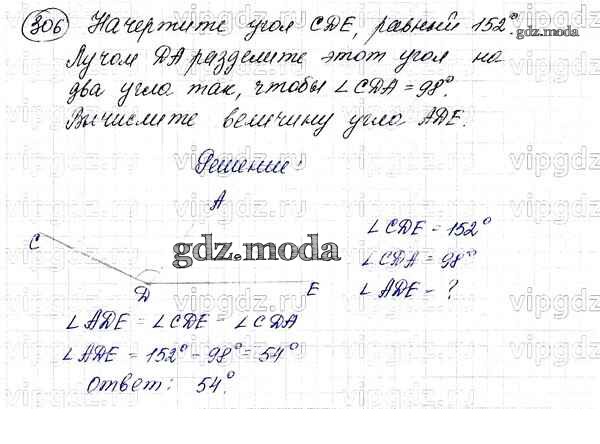 306 Начертите угол CDE, равный 152°.
Лучом DA разделите этот угол на
два угла так, чтобы ∠CDA = 98°.
Вычислите величину угла ADE.
Решение:
A
C
D
E
∠CDE = 152°
∠CDA = 98°
∠ADE - ?
∠ADE = ∠CDE - ∠CDA
∠ADE = 152° - 98° = 54°
Ответ: 54°.
gdz.moda
gdz.moda
vipgdz.ru